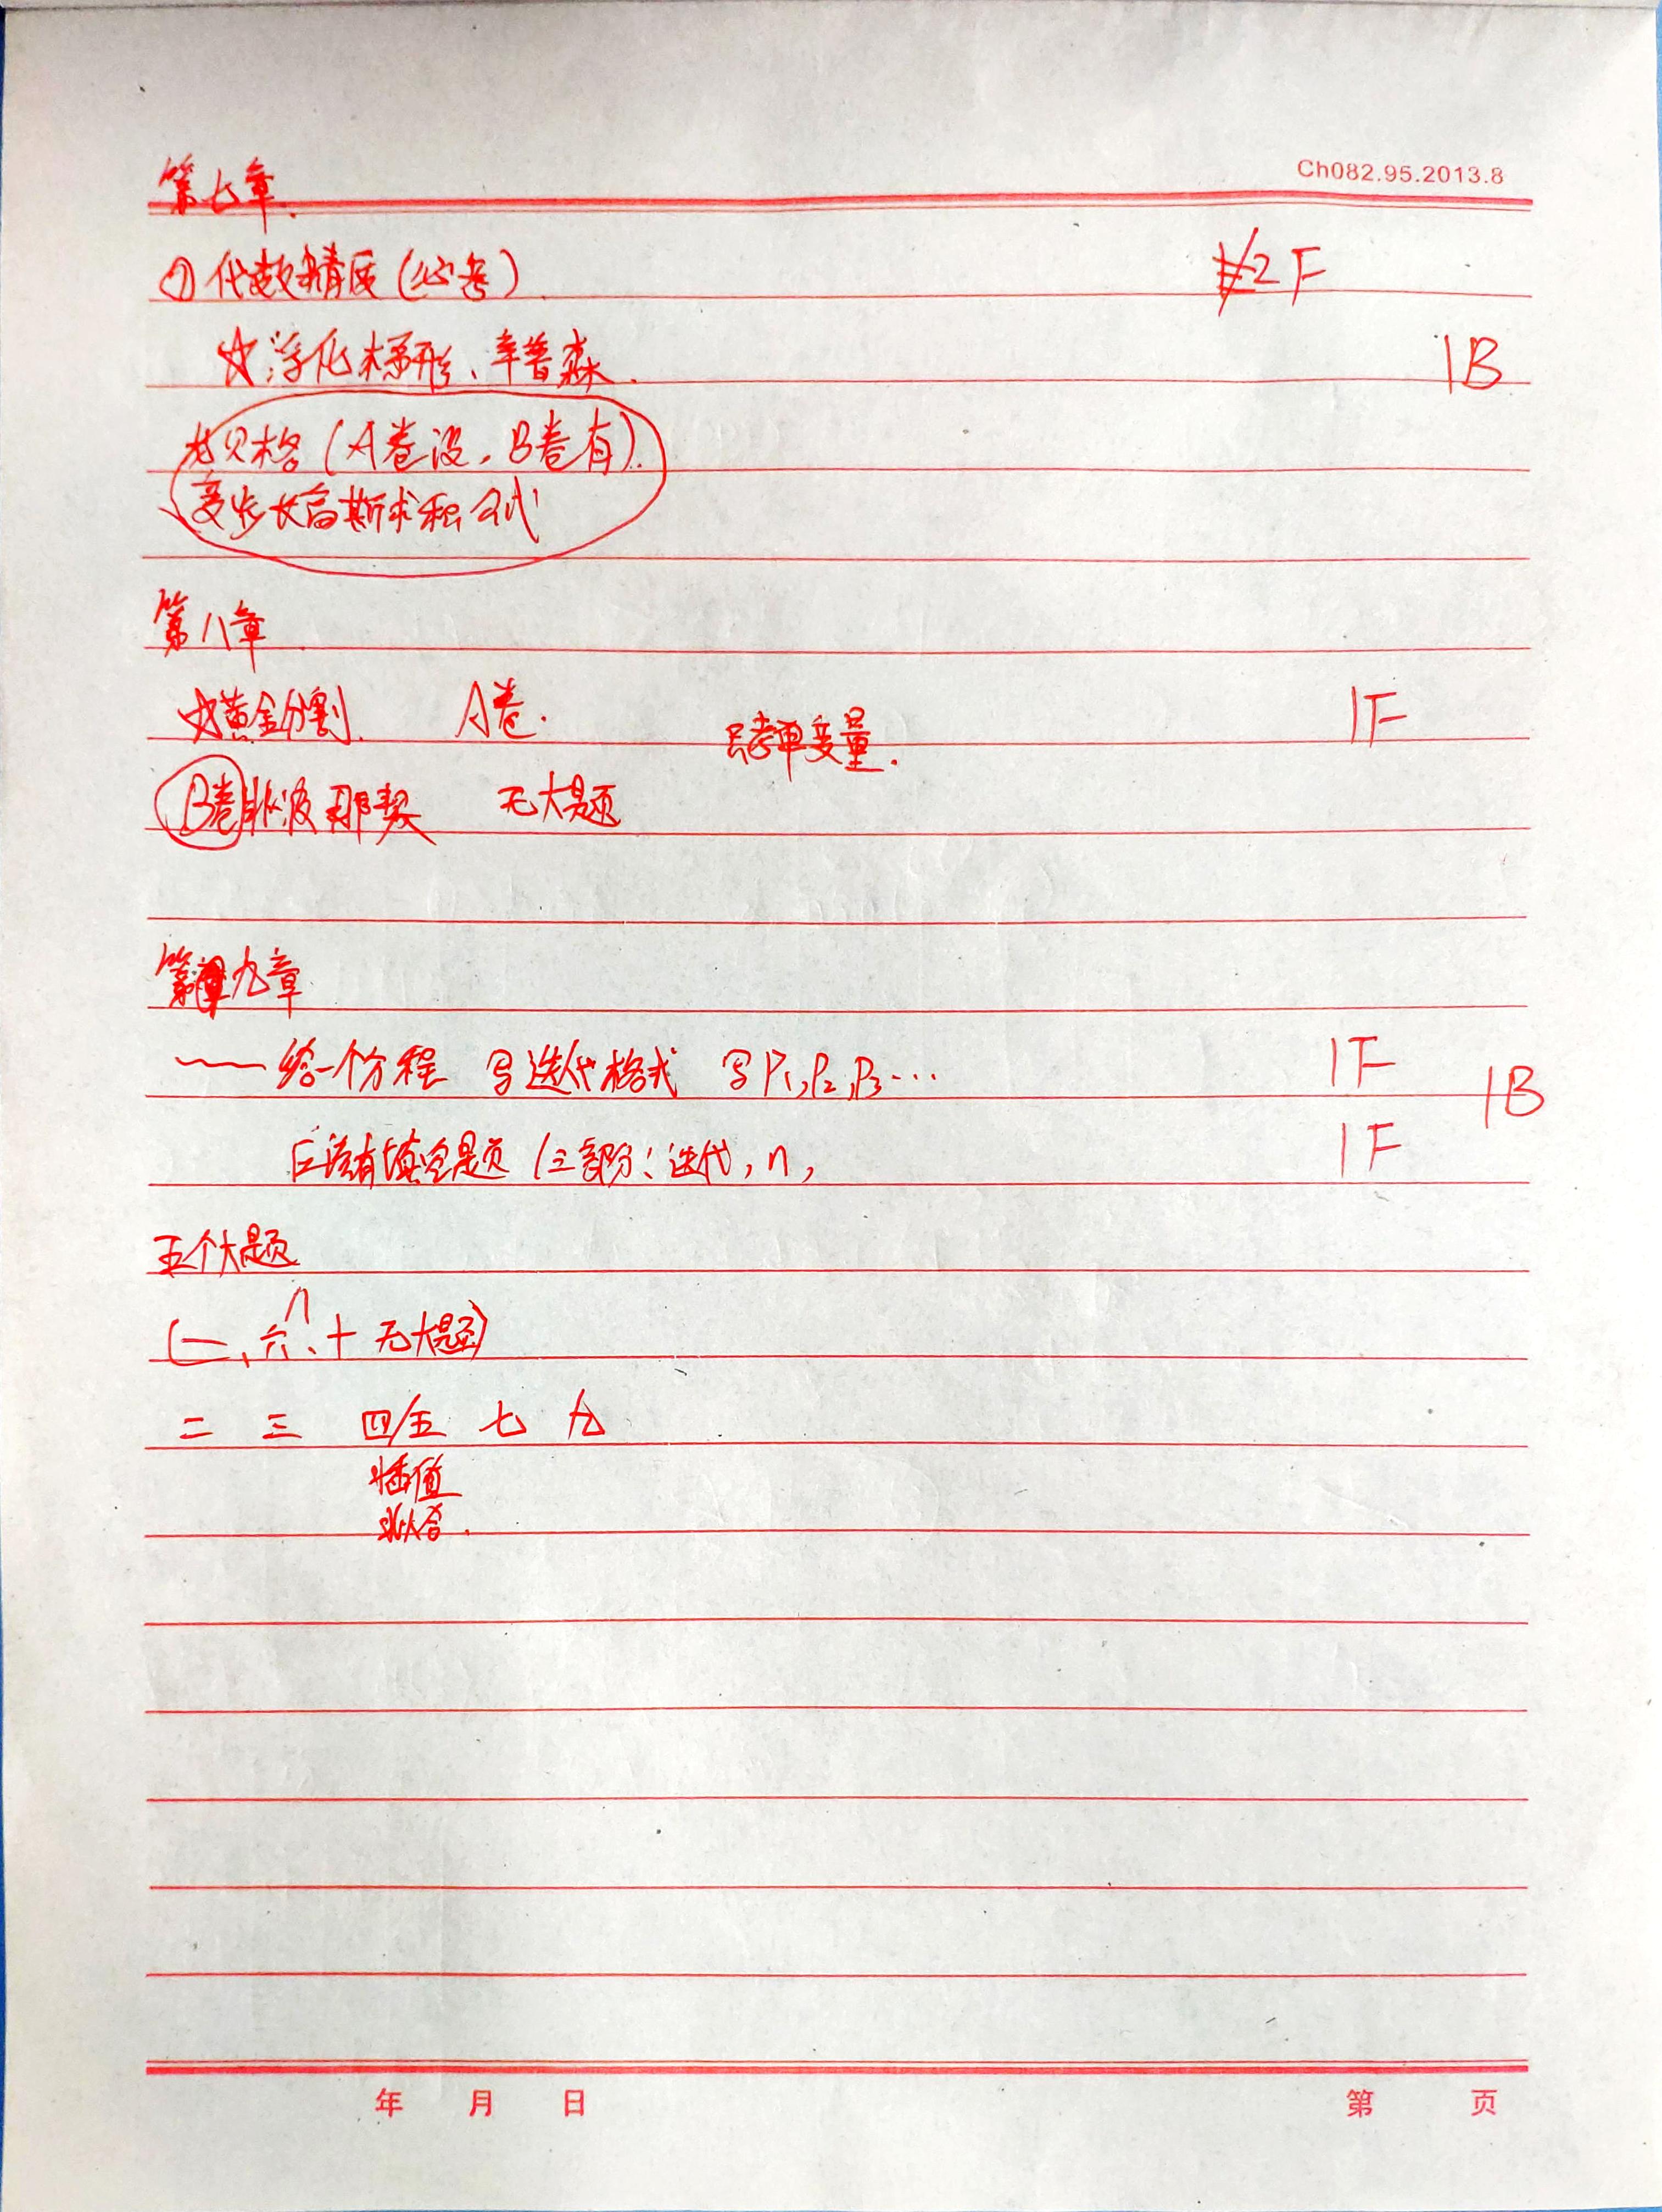 Ch082.95.2013.8
第七章.
① 代数精度(必考). 2F
☆ 梯形、辛普森. 1B
贝格(A卷没,B卷有).
变步长高斯求积公式
第八章
☆黄金分割. A卷. 只考单变量. 1F
B卷 菲波那契 无大题
第九章
给一个方程 写迭代格式 写P1,P2,P3... 1F 1B
应该有填空题(三部分:迭代,n, 1F
五个大题
(一、六、八、十 无大题)
二 三 四/五 七 九
插值
拟合.
年 月 日 第 页